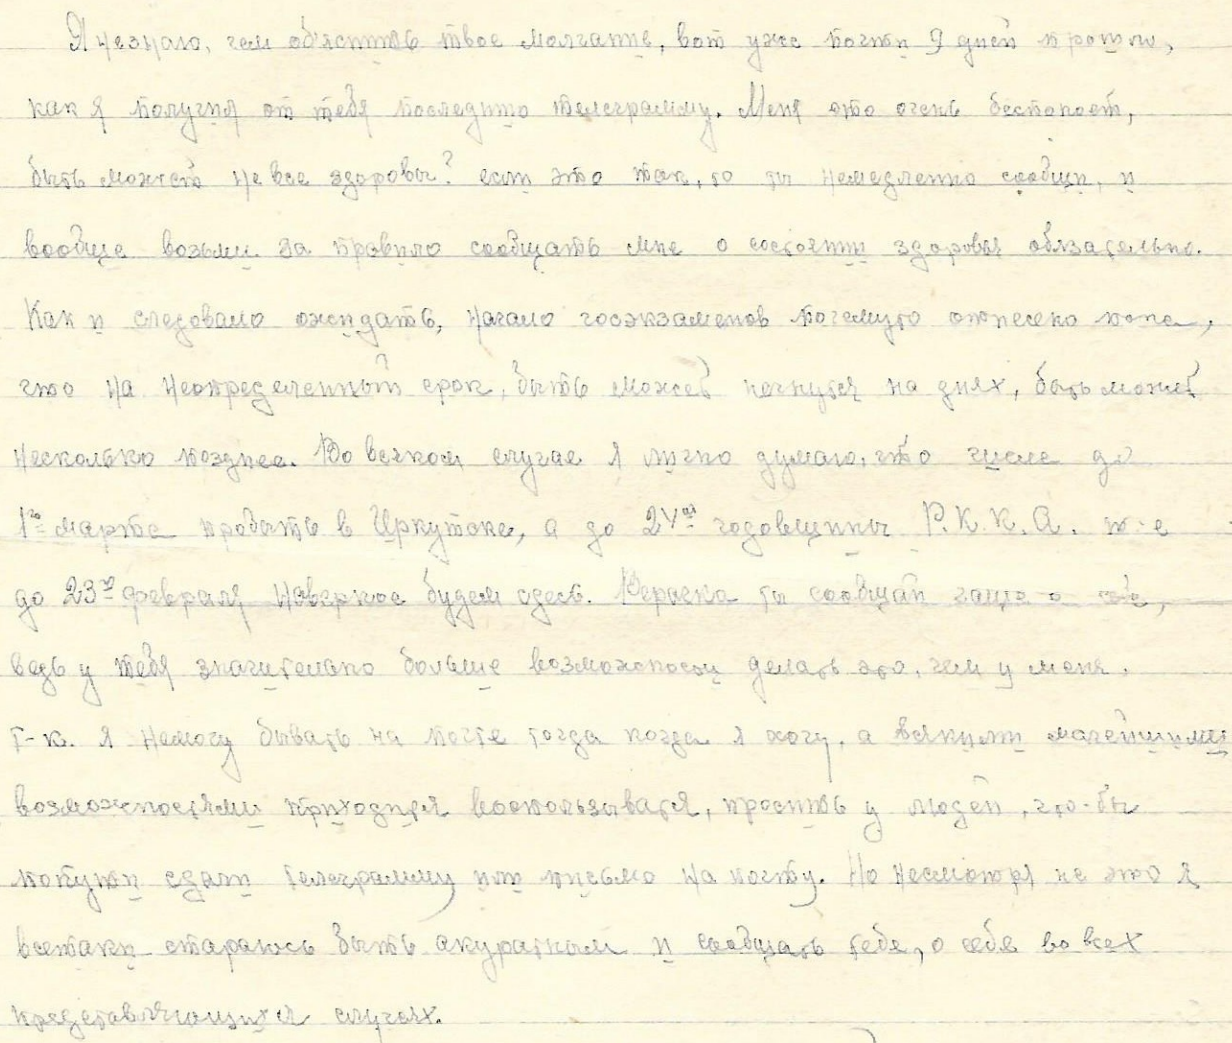 Я незнаю, чем об'яснить твое молчание, вот уже почти 9 дней прошло,
как я получил от тебя последнюю телеграмму. Меня это очень беспокоет,
быть может не все здоровы? если это так, то ты немедленно сообщи, и
вообще возьми за правило сообщать мне о состоянии здоровья обязательно.
Как и следовало ожидать, начало госэкзаменов почемуто отнесено пока,
что на неопределенный срок, быть может начнутся на днях, быть может
несколько позднее. Во всяком случае я лично думаю, что числа до
1го марта пробыть в Иркутске, а до 24ой годовщины Р.К.К.А. т-е
до 23го февраля наверное будем сдесь. Верочка ты сообщай чаще о себе,
ведь у тебя значительно больше возможности делать это, чем у меня.
т-к. я немогу бывать на почте тогда когда я хочу, а всякими малейшими
возможностями приходится воспользыватся, просить у людей, что-бы
попути сдали телеграмму или письмо на почту. Но несмотря на это я
всетаки стараюсь быть акуратным и сообщать тебе, о себе во всех
представляющихся случаях.